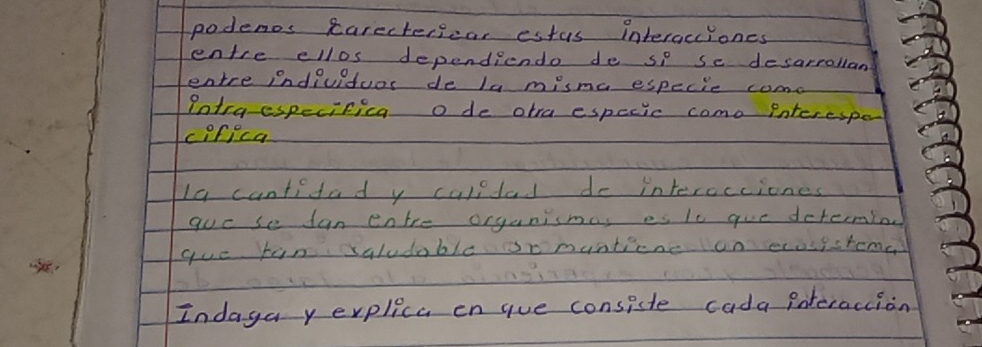 podemos carecterizar estas interacciones
entre ellos dependiendo de si se desarrollan
entre individuos de la misma especie como
intra-especifica o de otra especie como interespe-
cifica
la cantidad y calidad de interacciones
que se dan entre organismos es lo que determina
que tan saludable se mantiene un ecosistema
Indaga y explica en que consiste cada interacción